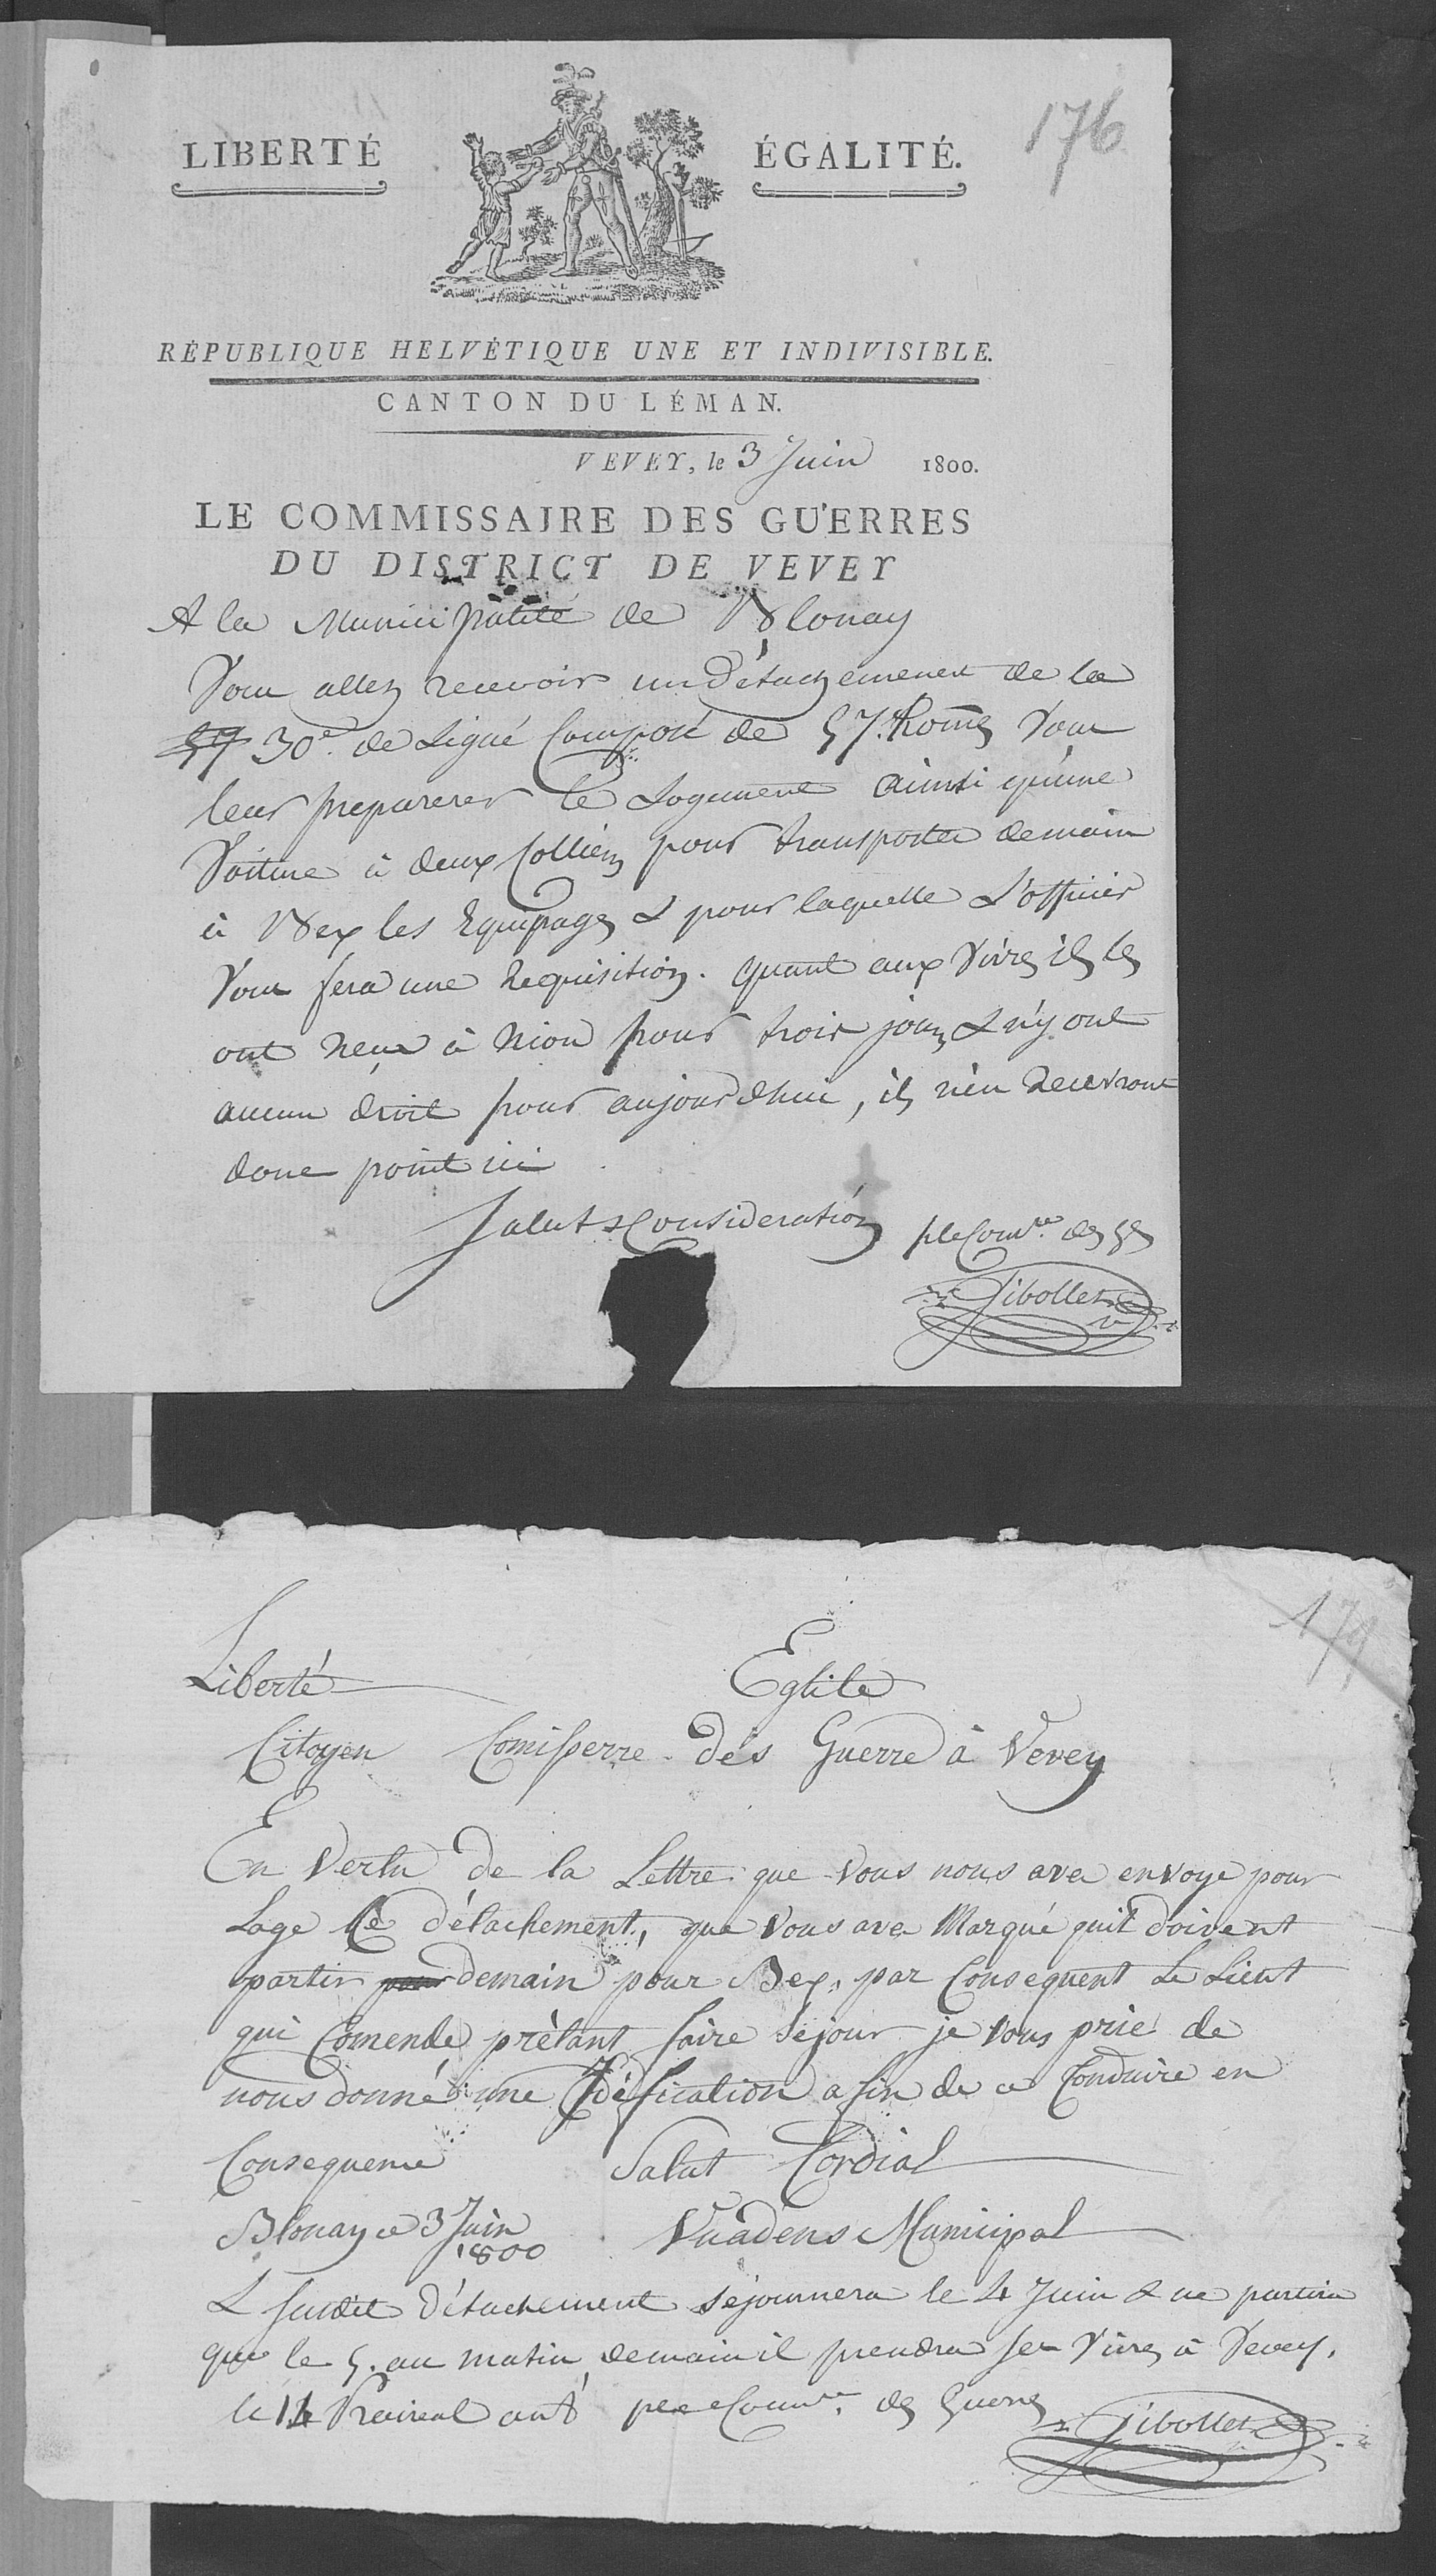 176
LIBERTÉ ÉGALITÉ.
RÉPUBLIQUE HELVÉTIQUE UNE ET INDIVISIBLE.
CANTON DU LÉMAN.
VEVEY, le 3 Juin 1800.
LE COMMISSAIRE DES GUERRES
DU DISTRICT DE VEVEY
A la Municipalité de Blonay
Vous allez recevoir un Détachement de la
57 30e. de Ligne Composé de 57. homes Vous
leur preparerer le Logement ainsi qu'une
Voiture à deux Colliers pour transporter demain
à Bex les Equipages & pour laquelle L'officier
Vous fera une Requisition. quant aux Vivres ils les
ont reçu à Nion pour trois jours & n'y ont
aucun droit pour aujourdhui, ils n'en Recevront
donc point ici
Salut & Consideration p le Comre. des gs
Gibollet
179
Liberté Eglite
Citoyen Comisserre des Guerre à Vevey
En Vertu de la Lettre que Vous nous avez envoye pour
Loge Le détachement, que Vous avez Marqué quil doivent
partir pour demain pour Bex, par Consequent Le Lieut
qui Comende prètant faire Sejour je Vous prie de
nous donné une fication a fin de ce Conduire en
Consequence Salut Cordial
Blonay ce 3 Juin 1800 Vuadens Municipal
L susdit Détachement séjournera le 4 Juin & ne partira
que le 5. au matin, demain il prendra ses Vivres à Vevey.
le 14 Prairial an 8 p le Comre. des Guerres
Gibollet